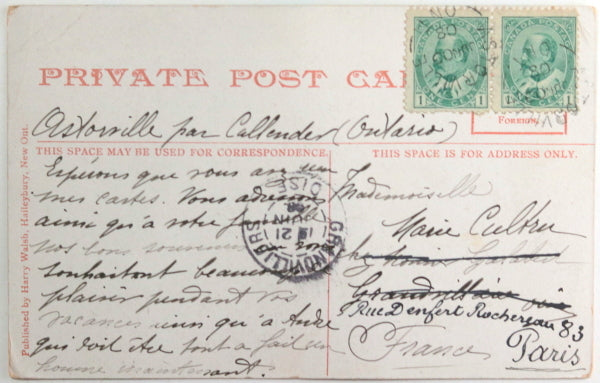 PRIVATE POST CA
CANADA POSTAGE
1 1
FOREIGN.
Astorville par Callender (Ontario)
THIS SPACE MAY BE USED FOR CORRESPONDENCE.
THIS SPACE IS FOR ADDRESS ONLY.
Espérons que vous avez
mes cartes. Vous adressons
ainsi qu'à votre
nos bons souvenirs en vous
souhaitant beaucoup
plaisir pendant vos
vacances ainsi qu'à André
qui doit être tout à fait un
homme maintenant.
GRANDVILLIERS
OISE
21
JUIN
08
Mademoiselle
Marie Cultru
chez
Grandvilliers
Rue Denfert Rochereau 83
Paris
France
Published by Harry Walsh, Haileybury, New Ont.